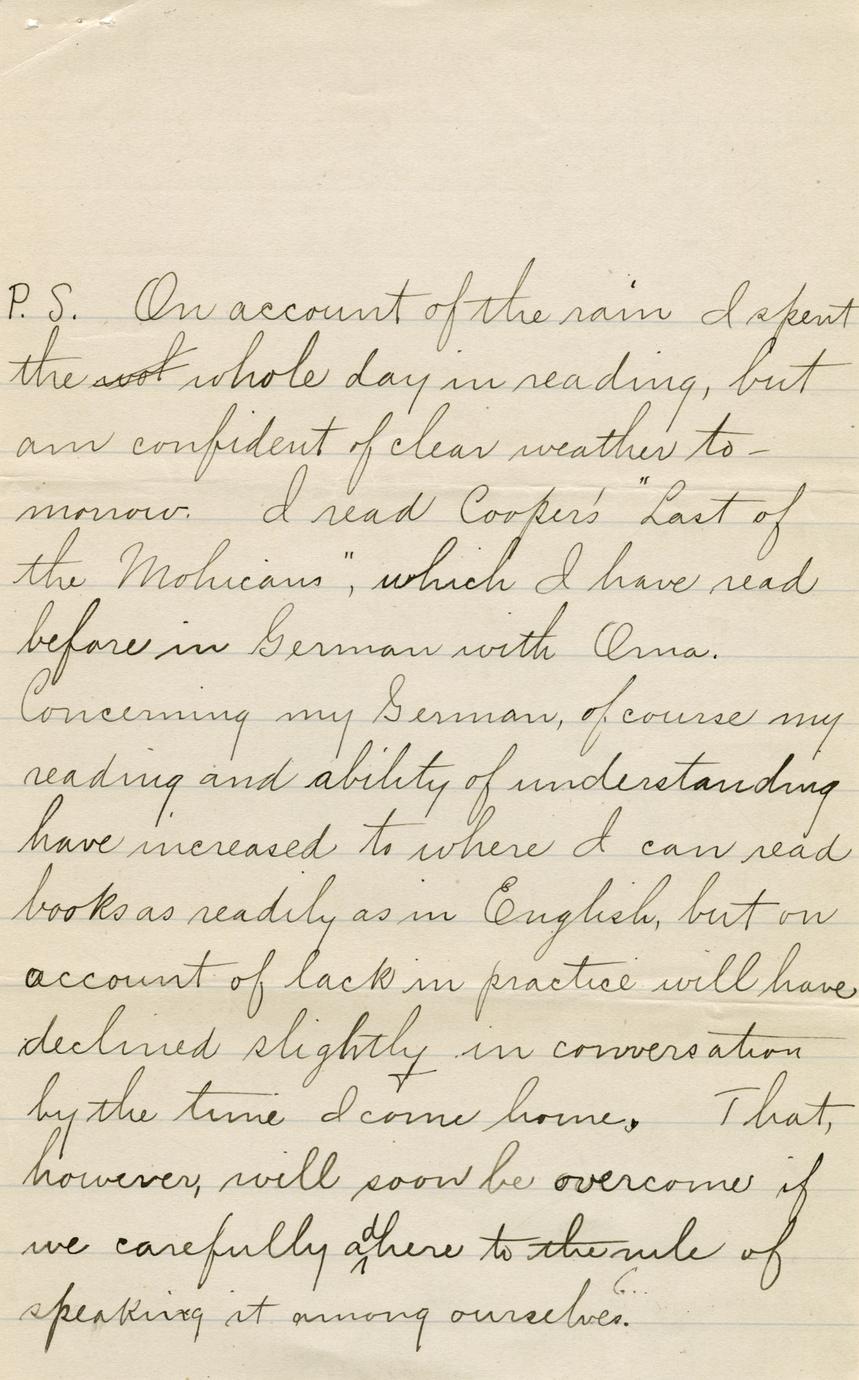 P. S. On account of the rain I spent
the wol whole day in reading, but
am confident of clear weather to-
morrow. I read Cooper's "Last of
the Mohicans", which I have read
before in German with Oma.
Concerning my German, of course my
reading and ability of understanding
have increased to where I can read
books as readily as in English, but on
account of lack in practice will have
declined slightly in conversation
by the time I come home. That,
however, will soon be overcome if
we carefully adhere to the rule of
speaking it among ourselves.